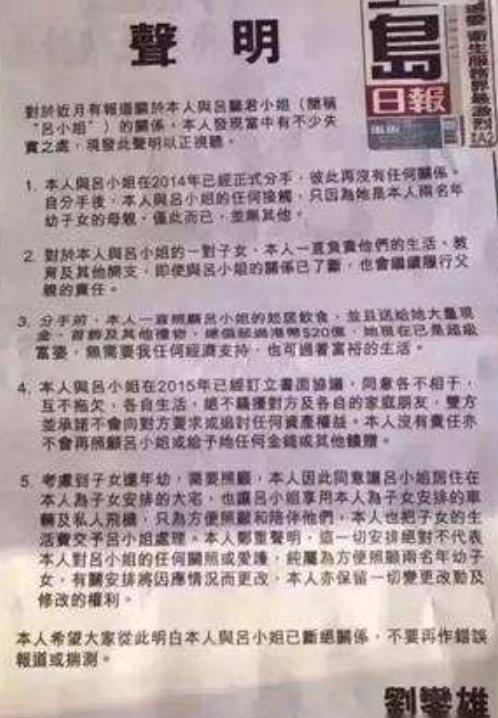 聲 明
島
日報
對於近月有報道關於本人與呂麗君小姐（簡稱
“呂小姐”）的關係，本人發現當中有不少失
實之處，現發此聲明以正視聽。
1. 本人與呂小姐在2014年已經正式分手，彼此再沒有任何關係。
自分手後，本人與呂小姐的任何接觸，只因為她是本人兩名年
幼子女的母親，僅此而已，並無其他。
2. 對於本人與呂小姐的一對子女，本人一直負責他們的生活、教
育及其他開支，即使與呂小姐的關係已了斷，也會繼續履行父
親的責任。
3. 分手前，本人一直照顧呂小姐的起居飲食，並且送給她大量現
金、首飾及其他禮物，總值超過港幣$20億，她現在已是超級
富婆，無需要我任何經濟支持，也可過着富裕的生活。
4. 本人與呂小姐在2015年已經訂立書面協議，同意各不相干，
互不拖欠，各自生活，絕不騷擾對方及各自的家庭朋友，雙方
並承諾不會向對方要求或追討任何資產權益。本人沒有責任亦
不會再照顧呂小姐或給予她任何金錢或其他饋贈。
5. 考慮到子女還年幼，需要照顧，本人因此同意讓呂小姐居住在
本人為子女安排的大宅，也讓呂小姐享用本人為子女安排的車
輛及私人飛機，只為方便照顧和陪伴他們，本人也把子女的生
活費交予呂小姐處理。本人鄭重聲明，這一切安排絕對不代表
本人對呂小姐的任何關照或愛護，純屬為方便照顧兩名年幼子
女，有關安排將因應情況而更改，本人亦保留一切變更改動及
修改的權利。
本人希望大家從此明白本人與呂小姐已斷絕關係，不要再作錯誤
報道或揣測。
劉鑾雄